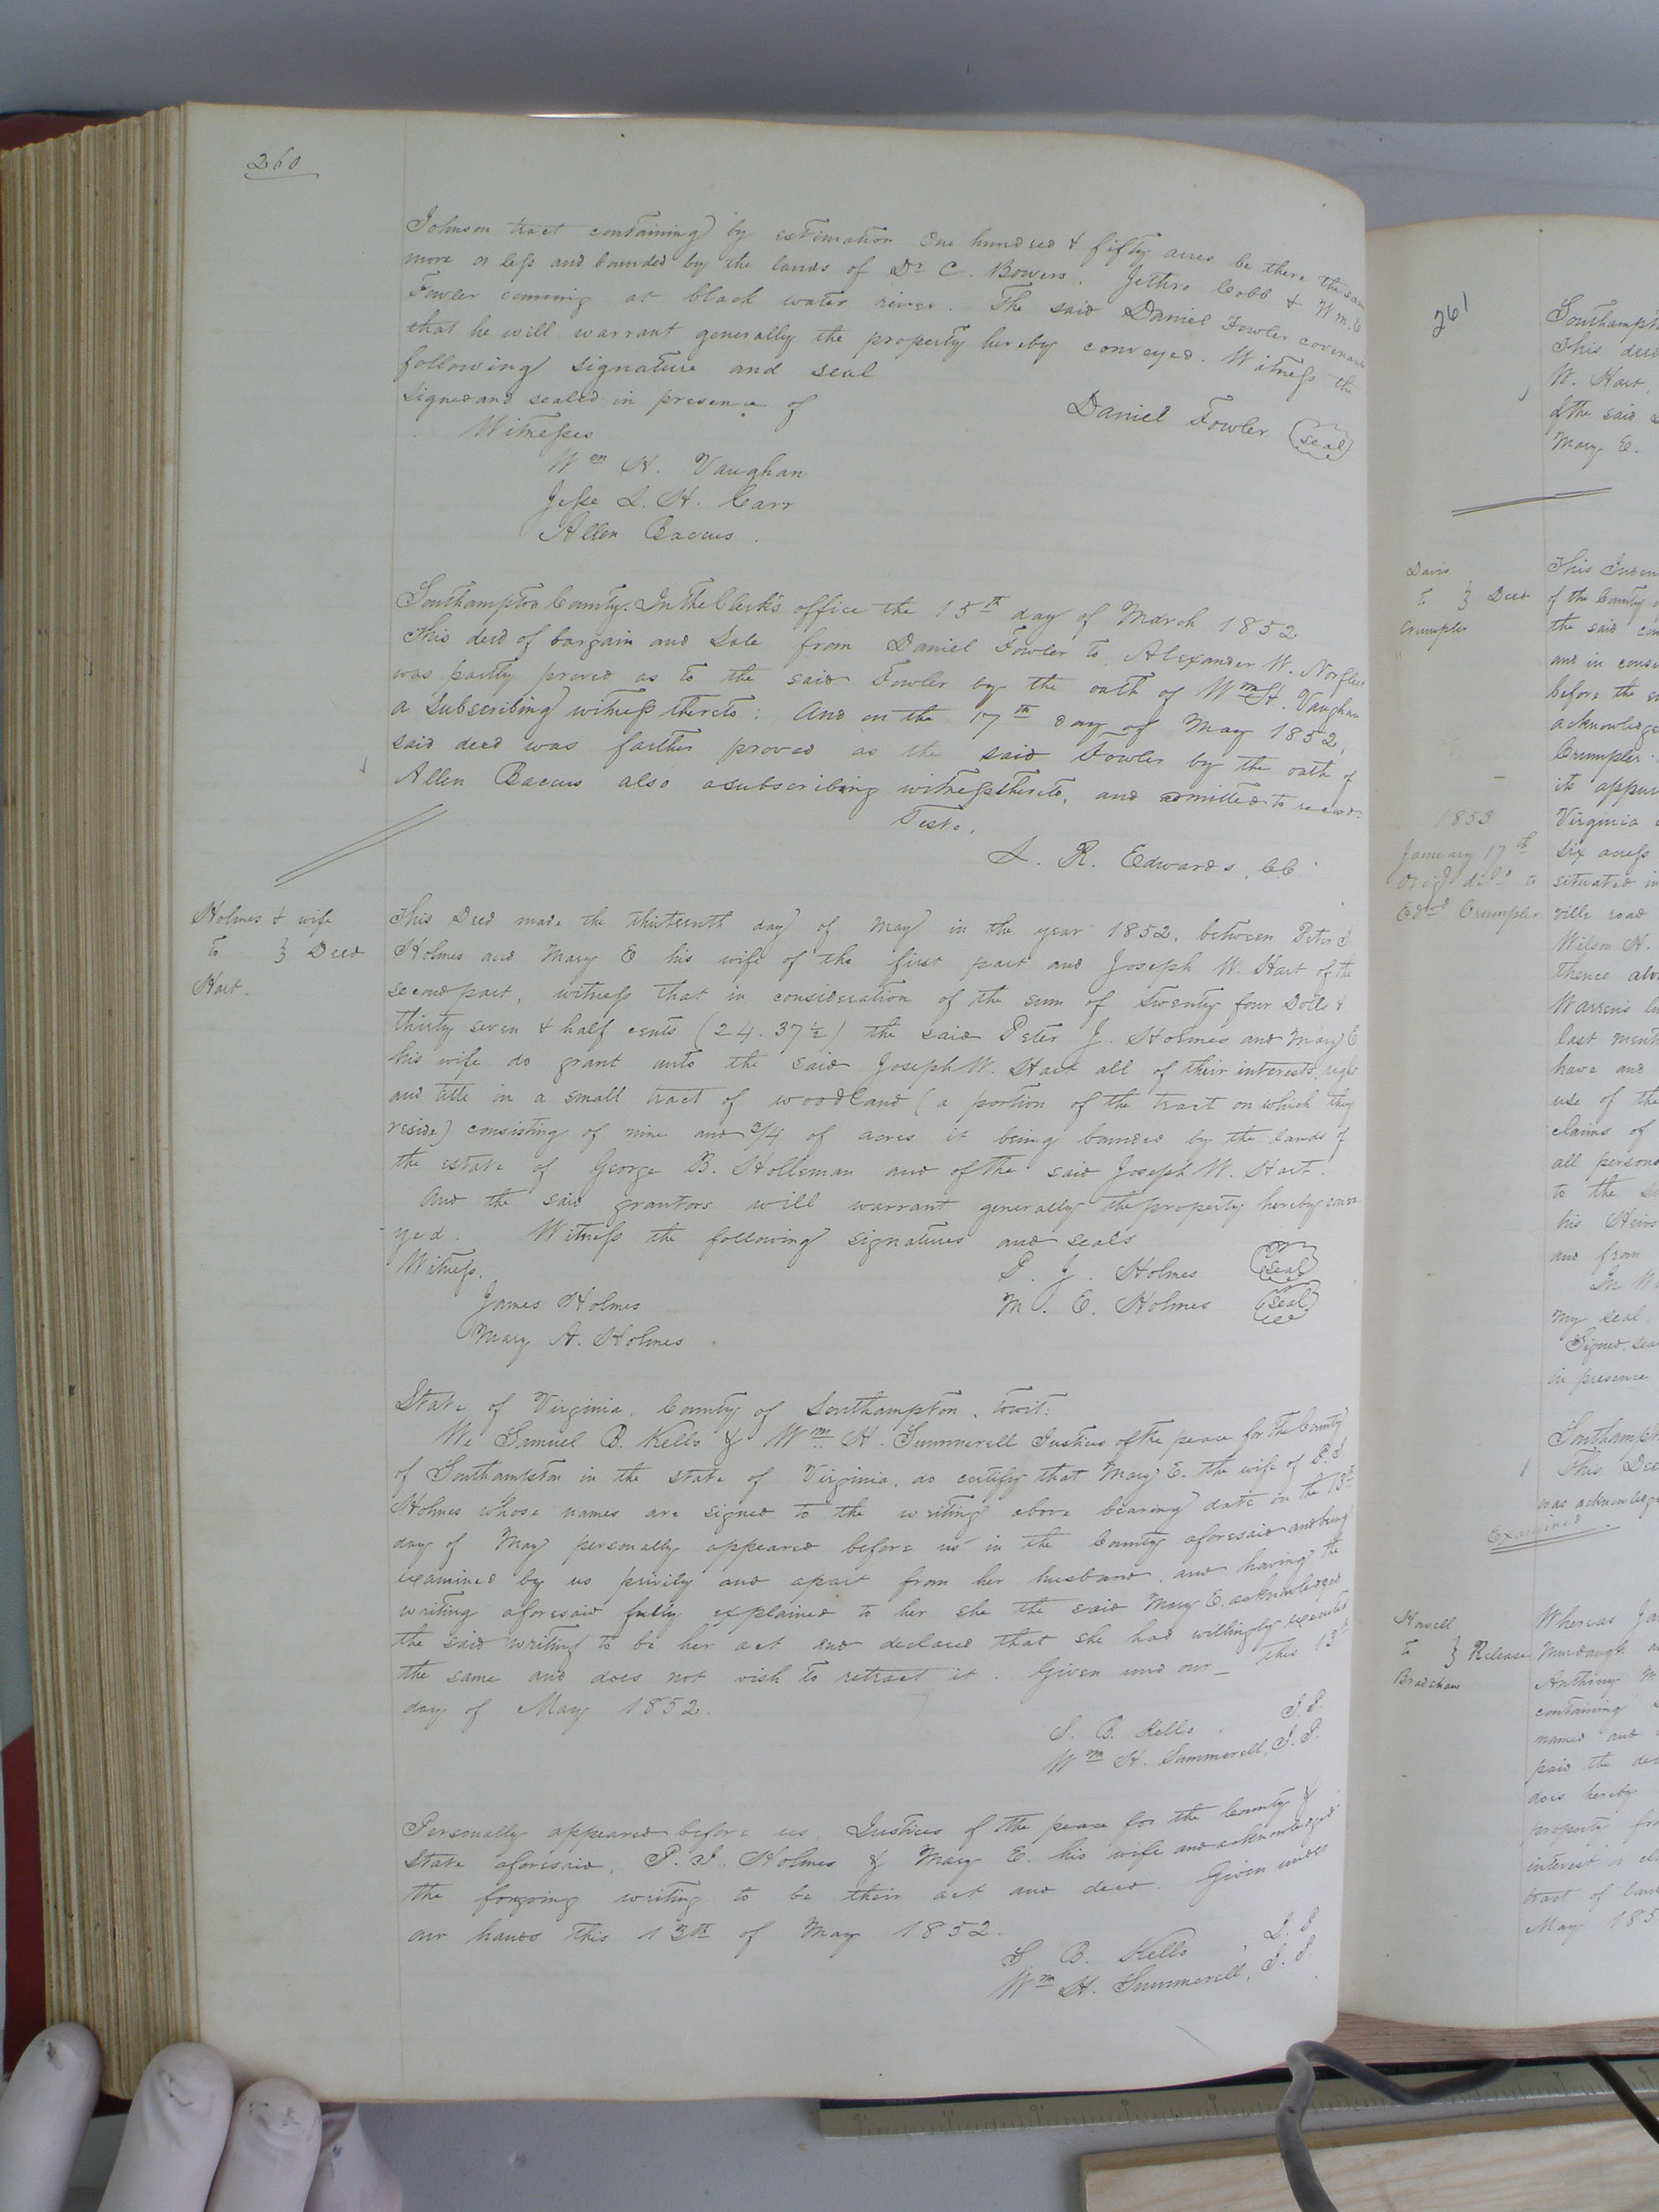 260
Johnson tract containing by estimation One hundred & fifty acres be there the same
more or less and bounded by the lands of Dr C. Bowers, Jethro Cobb & Wm. E
Fowler coming at black water river. The said Daniel Fowler covenants
that he will warrant generally the property hereby conveyed. Witness the
following signature and seal
Signed and sealed in presence of
Daniel Fowler (seal)
Witnesses
Wm H. Vaughan
Jesse L. H. Carr
Allen Baccus.
Southampton County. In the Clerk's office the 15th day of March 1852
This deed of bargain and Sale from Daniel Fowler to Alexander W. Norfleet
was partly proved as to the said Fowler by the oath of Wm H. Vaughan
a Subscribing witness thereto: And on the 17th day of May 1852,
said deed was farther proved as the said Fowler by the oath of
Allen Baccus also a subscribing witness thereto, and admitted to record.
Teste,
L. R. Edwards, C.C.
Holmes & wife
to } Deed
Hart.
This Deed made the thirteenth day of May in the year 1852, between Peter J
Holmes and Mary E his wife of the first part and Joseph W. Hart of the
second part, witness that in consideration of the sum of twenty four Dolls &
thirty seven & half cents (24.37½) the said Peter J. Holmes and Mary E.
his wife do grant unto the said Joseph W. Hart all of their interests, right
and title in a small tract of woodland (a portion of the tract on which they
reside) consisting of nine and 3/4 of acres it being bounded by the lands of
the estate of George B. Holleman and of the said Joseph W. Hart.
And the said grantors will warrant generally the property hereby conve-
-yed. Witness the following signatures and seals
Witness.
P. J. Holmes (Seal)
James Holmes
M. E. Holmes (Seal)
Mary A. Holmes
State of Virginia, County of Southampton, towit:
We Samuel B. Kello & Wm H. Summerell Justices of the peace for the County
of Southampton in the state of Virginia, do certify that Mary E. the wife of P. J
Holmes whose names are signed to the writing above bearing date on the 13th
day of May personally appeared before us in the County aforesaid and being
examined by us privily and apart from her husband, and having the
writing aforesaid fully explained to her she the said Mary E. acknowledged
the said writing to be her act and declared that she had willingly executed
the same and does not wish to retract it. Given und our _ this 13th
day of May 1852.
S. B. Kello. J.P.
Wm H. Summerell, J.P.
Personally appeared before us, Justices of the peace for the County &
State aforesaid, P. J. Holmes & Mary E. his wife and acknowledged
the forgoing writing to be their act and deed. Given under
our hands this 13th of May 1852.
S. B. Kello, J.P.
Wm H. Summerell, J.P.
261
Southampt
This deed
W. Hart
of the said
Mary E.
Davis
to } Deed
Crumpler
This Inden
of the County
the said
and in cons
before the
acknowledge
Crumpler
its appur
1853
January 17th
Orig deld to
Edmd Crumpler
Virginia
six acres
situated in
ville road
Wilson H.
thence
Warrens
last ment
have and
use of the
claims of
all persons
to the
his Heirs
and from
In W
my seal.
Signed, sea
in presence
Southampt
This Dee
was acknowledge
Examined
Howell
to } Release
Bradshaw
Whereas
Murdaugh
Anthony M
containing
named and
paid the
does hereby
property
interest or
tract of
May 185